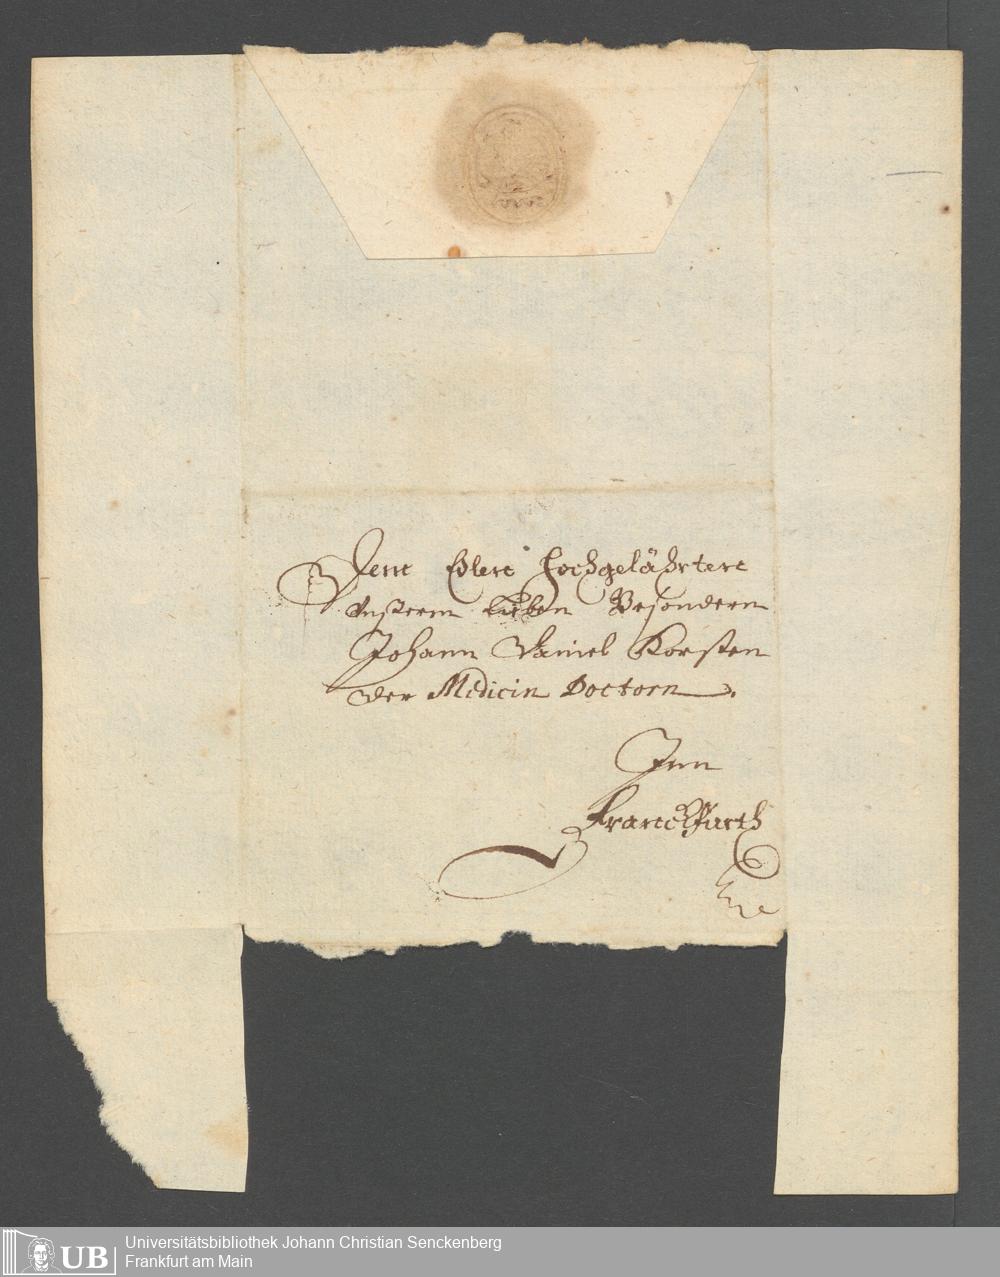 Dem Edlen Hochgelährten
Unserm Lieben Besondern
Johann Daniel Horsten
Der Medicin Doctorn.
Inn
Franckfurth
UB
Universitätsbibliothek Johann Christian Senckenberg
Frankfurt am Main